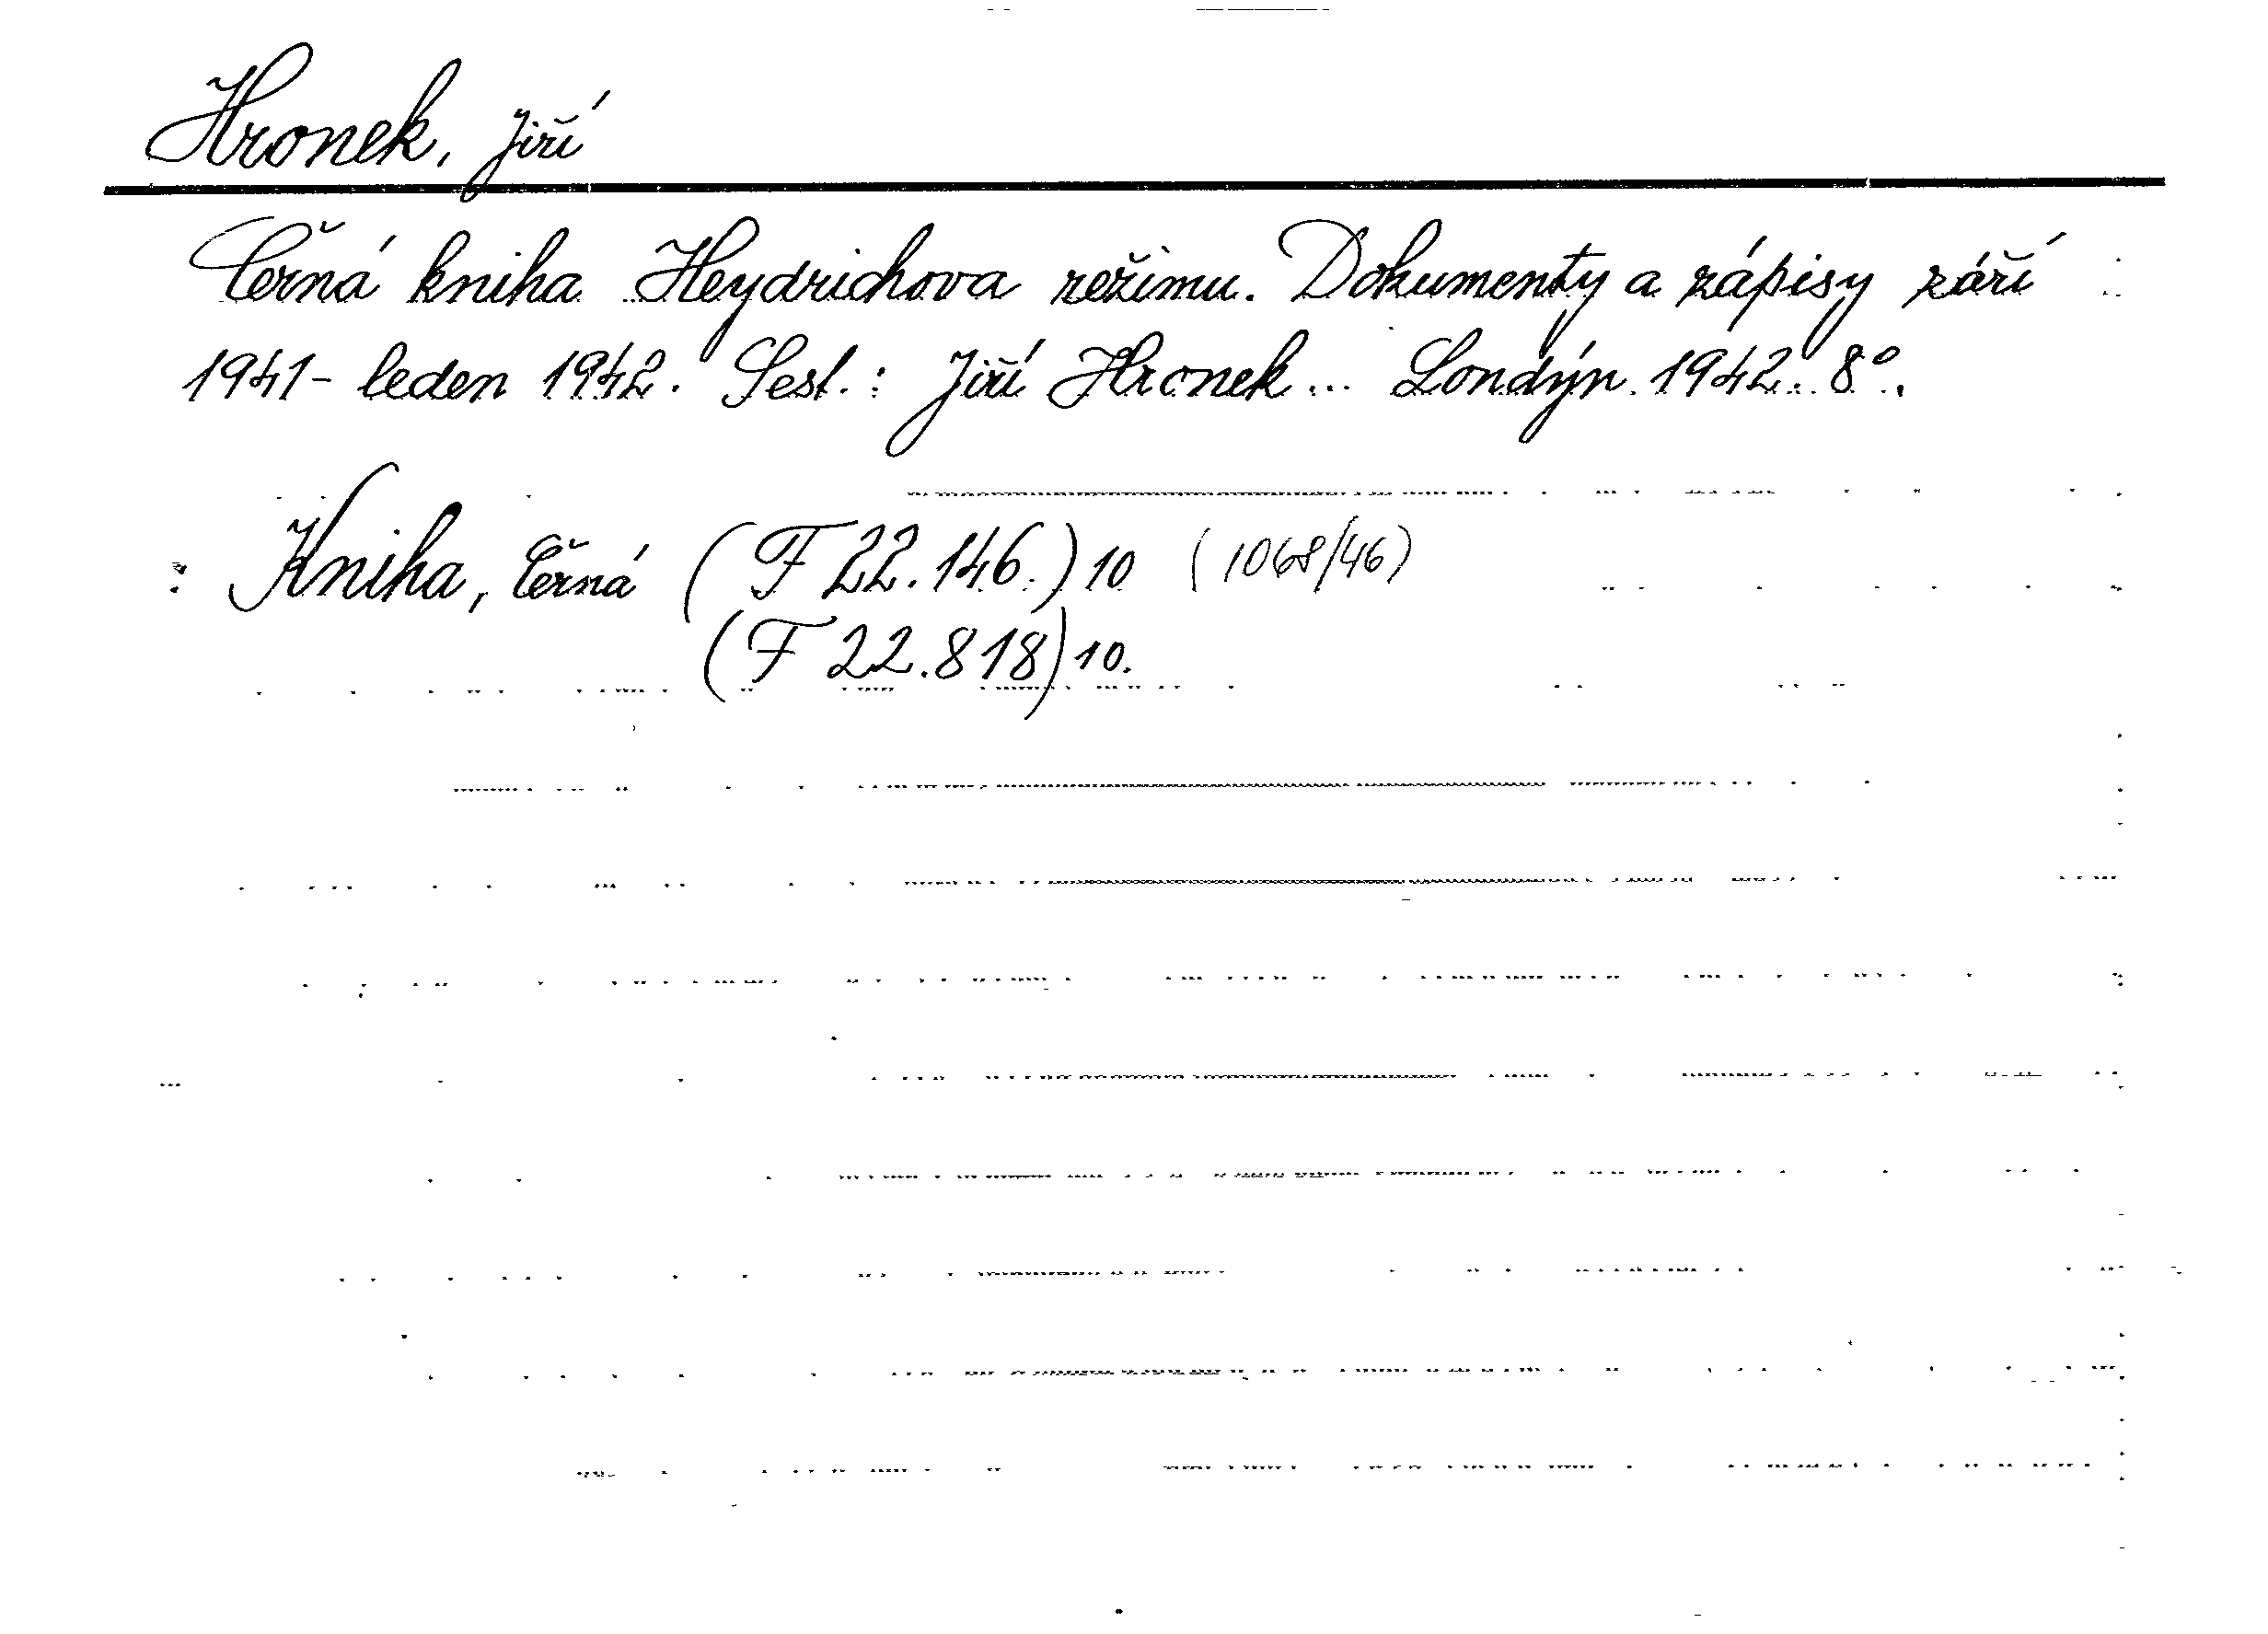 Hronek, Jiří
Černá kniha Heydrichova režimu. Dokumenty a zápisy září
1941- leden 1942. Sest.: Jiří Hronek... Londýn. 1942. 8°.
: Kniha, Černá (F 22.146.) 10 (1068/46)
(F 22.818) 10.